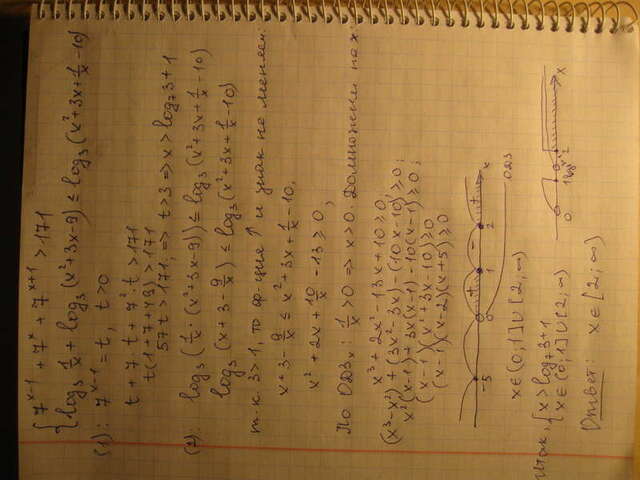 { 7^(x-1) + 7^x + 7^(x+1) > 171
{ log₃ 1/x + log₃(x²+3x-9) ≤ log₃(x²+3x+1/x-10)
(1): 7^(x-1) = t, t>0
t + 7·t + 7²·t > 171
t(1+7+49) > 171
57t > 171, => t>3 => x > log₇3+1
(2): log₃(1/x·(x²+3x-9)) ≤ log₃(x²+3x+1/x-10)
log₃(x+3-9/x) ≤ log₃(x²+3x+1/x-10)
т.к. 3>1, то ф-ция ↑ и знак не меняем:
x+3-9/x ≤ x²+3x+1/x-10,
x²+2x+10/x-13 ≥ 0,
По ОДЗx: 1/x>0 => x>0. Домножим на x
x³+2x²-13x+10 ≥ 0,
(x³-x²)+(3x²-3x)-(10x-10) ≥ 0;
x²(x-1)+3x(x-1)-10(x-1) ≥ 0;
(x-1)(x²+3x-10) ≥ 0
(x-1)(x-2)(x+5) ≥ 0
- + - +
-5 0 1 2 x
ОДЗ
x∈(0;1]∪[2;∞)
Итак, { x > log₇3+1
{ x∈(0;1]∪[2;∞)
0 1 2 x
Ответ: x∈[2;∞)